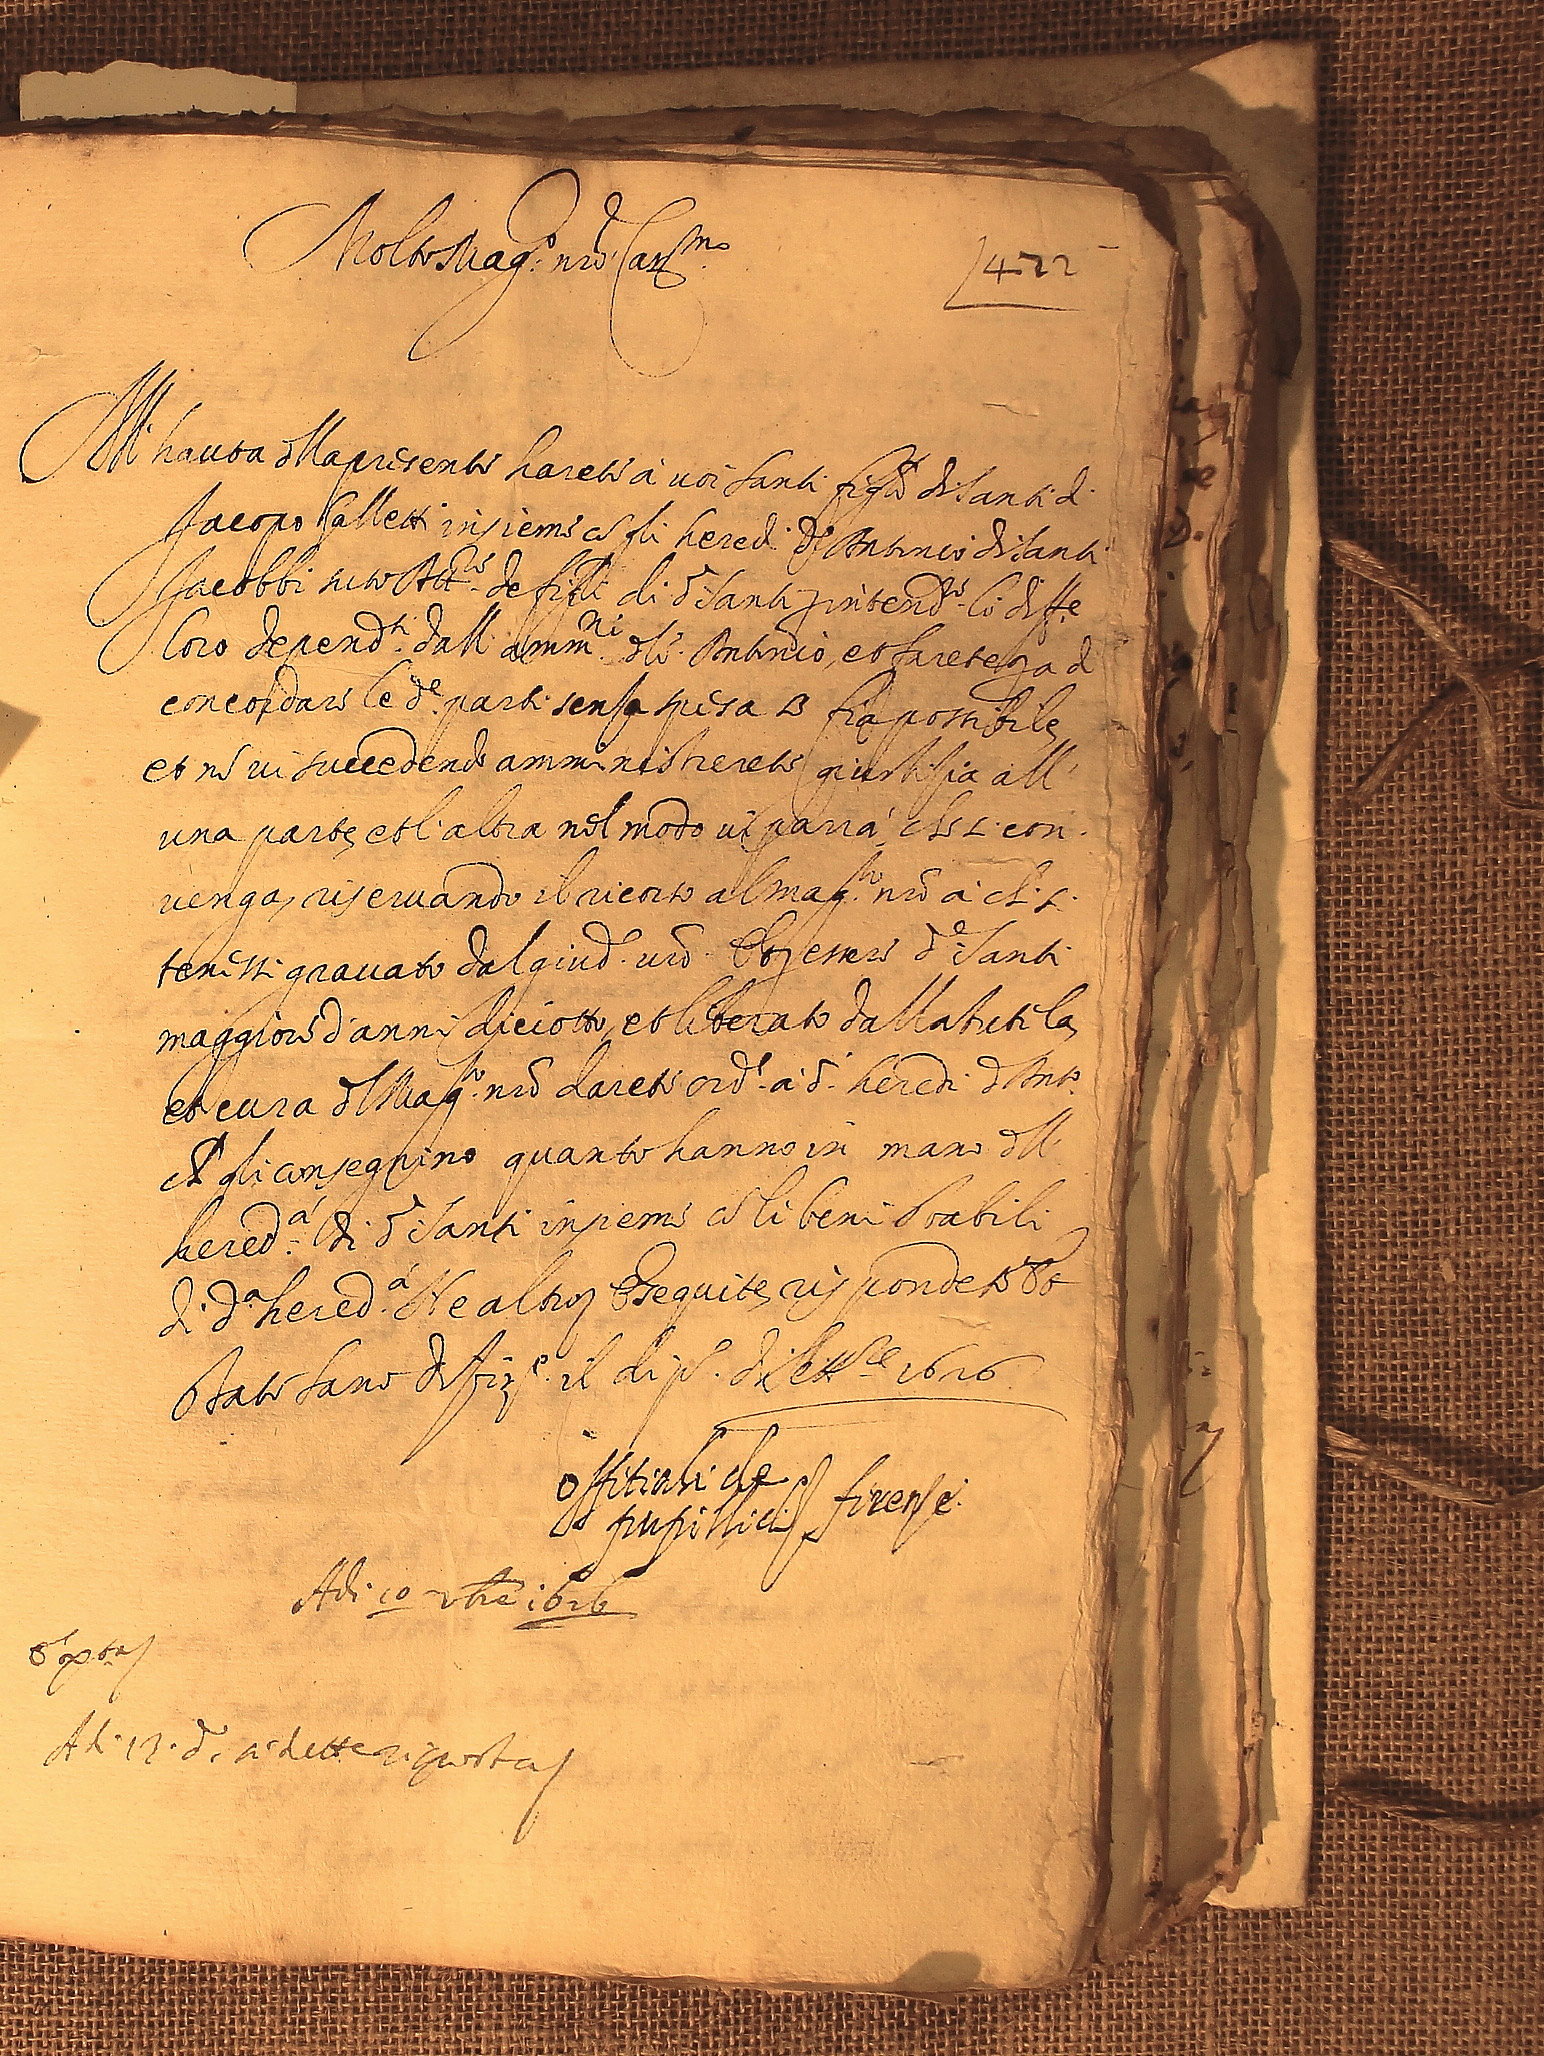 Molto Mag.co nro Car.mo
422
All hauuta della presente farete à uoi Santi figlo di Santi di
Jacopo Galletti insieme co gli heredi di Antonio di Santi
Jacobbi
loro depend.ti dall amm.ni Antonio, et farete
concordare le d.e parti senza spesa fia possibile
et no ui succedendo amministrerete giustizia all'
una parte, et l'altra nel modo ui parra che si con
uenga, riseruando il ricorso al mag.to nro à chi si
tenessi grauato dal giud. uro. Et essere d.o Santi
maggiore d'anni diciotto, et liberato dalla tutela,
et cura del Mag.to nro darete ord.e a d.i heredi d Ant.o
che gli consegnino quanto hanno in mano dell'
hered.a di d.o Santi insieme co li beni stabili
di d.a hered.a Ne altro Eseguite, rispondete Et
state sano di Firz.e il di p.o di Sett.re 1626
offitiali de
pupilli di firenze
Adi 10 7bre 1626
Adi 12 d.o si dette risposta